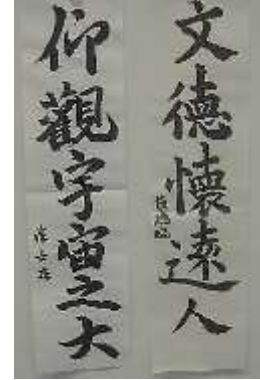 文德懷遠人
仰觀宇宙之大